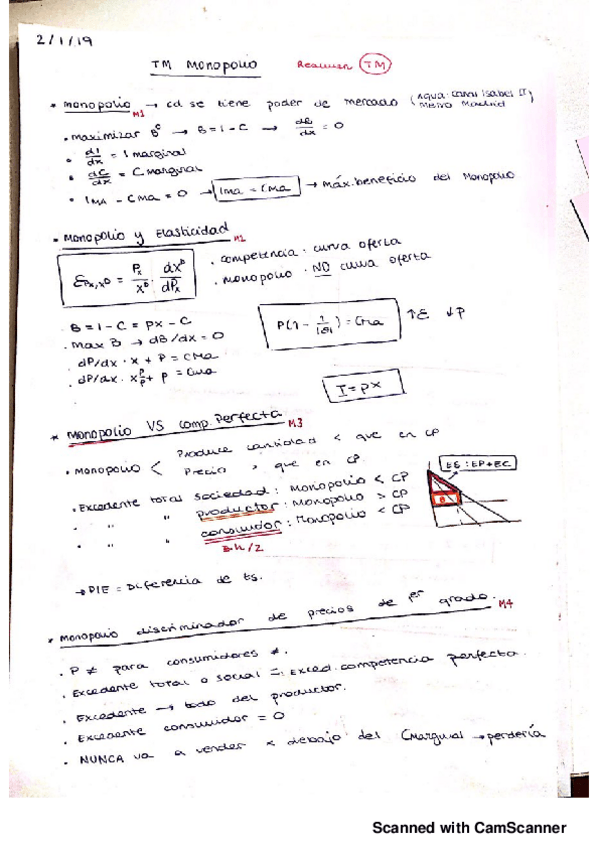 2/1/19
TM Monopolio Resumen TM
* Monopolio → cd se tiene poder de mercado (Agua: Canal Isabel II, Metro Madrid)
M1
• maximizar Bº → B = I - C → dB/dx = 0
• dI/dx = I marginal
• dC/dx = C marginal
• IMA - CMA = 0 → IMA = CMA → máx. beneficio del Monopolio
• Monopolio y Elasticidad
M2
εPx,xD = Px/xD · dxD/dPx
• competencia: curva oferta
• monopolio: NO curva oferta
• B = I - C = PX - C
• max B → dB/dx = 0
• dP/dx · x + P = CMa
• dP/dx · x P/P + P = CMa
P(1 - 1/|ε|) = CMa ↑ε ↓P
I = PX
* Monopolio VS comp. Perfecta
M3
• Monopolio < Produce cantidad < que en CP
Precio > que en CP
EE: EP+EC
• Excedente total sociedad: Monopolio < CP
• " " productor: Monopolio > CP
• " " consumidor: Monopolio < CP
B·h/2
→ PIE = Diferencia de Es.
* Monopolio discriminador de precios de 1er grado.
M4
• P ≠ para consumidores ≠.
• Excedente total o social = Exced. competencia perfecta.
• Excedente → todo del productor.
• Excedente consumidor = 0
• NUNCA va a vender x debajo del CMarginal → perdería
Scanned with CamScanner